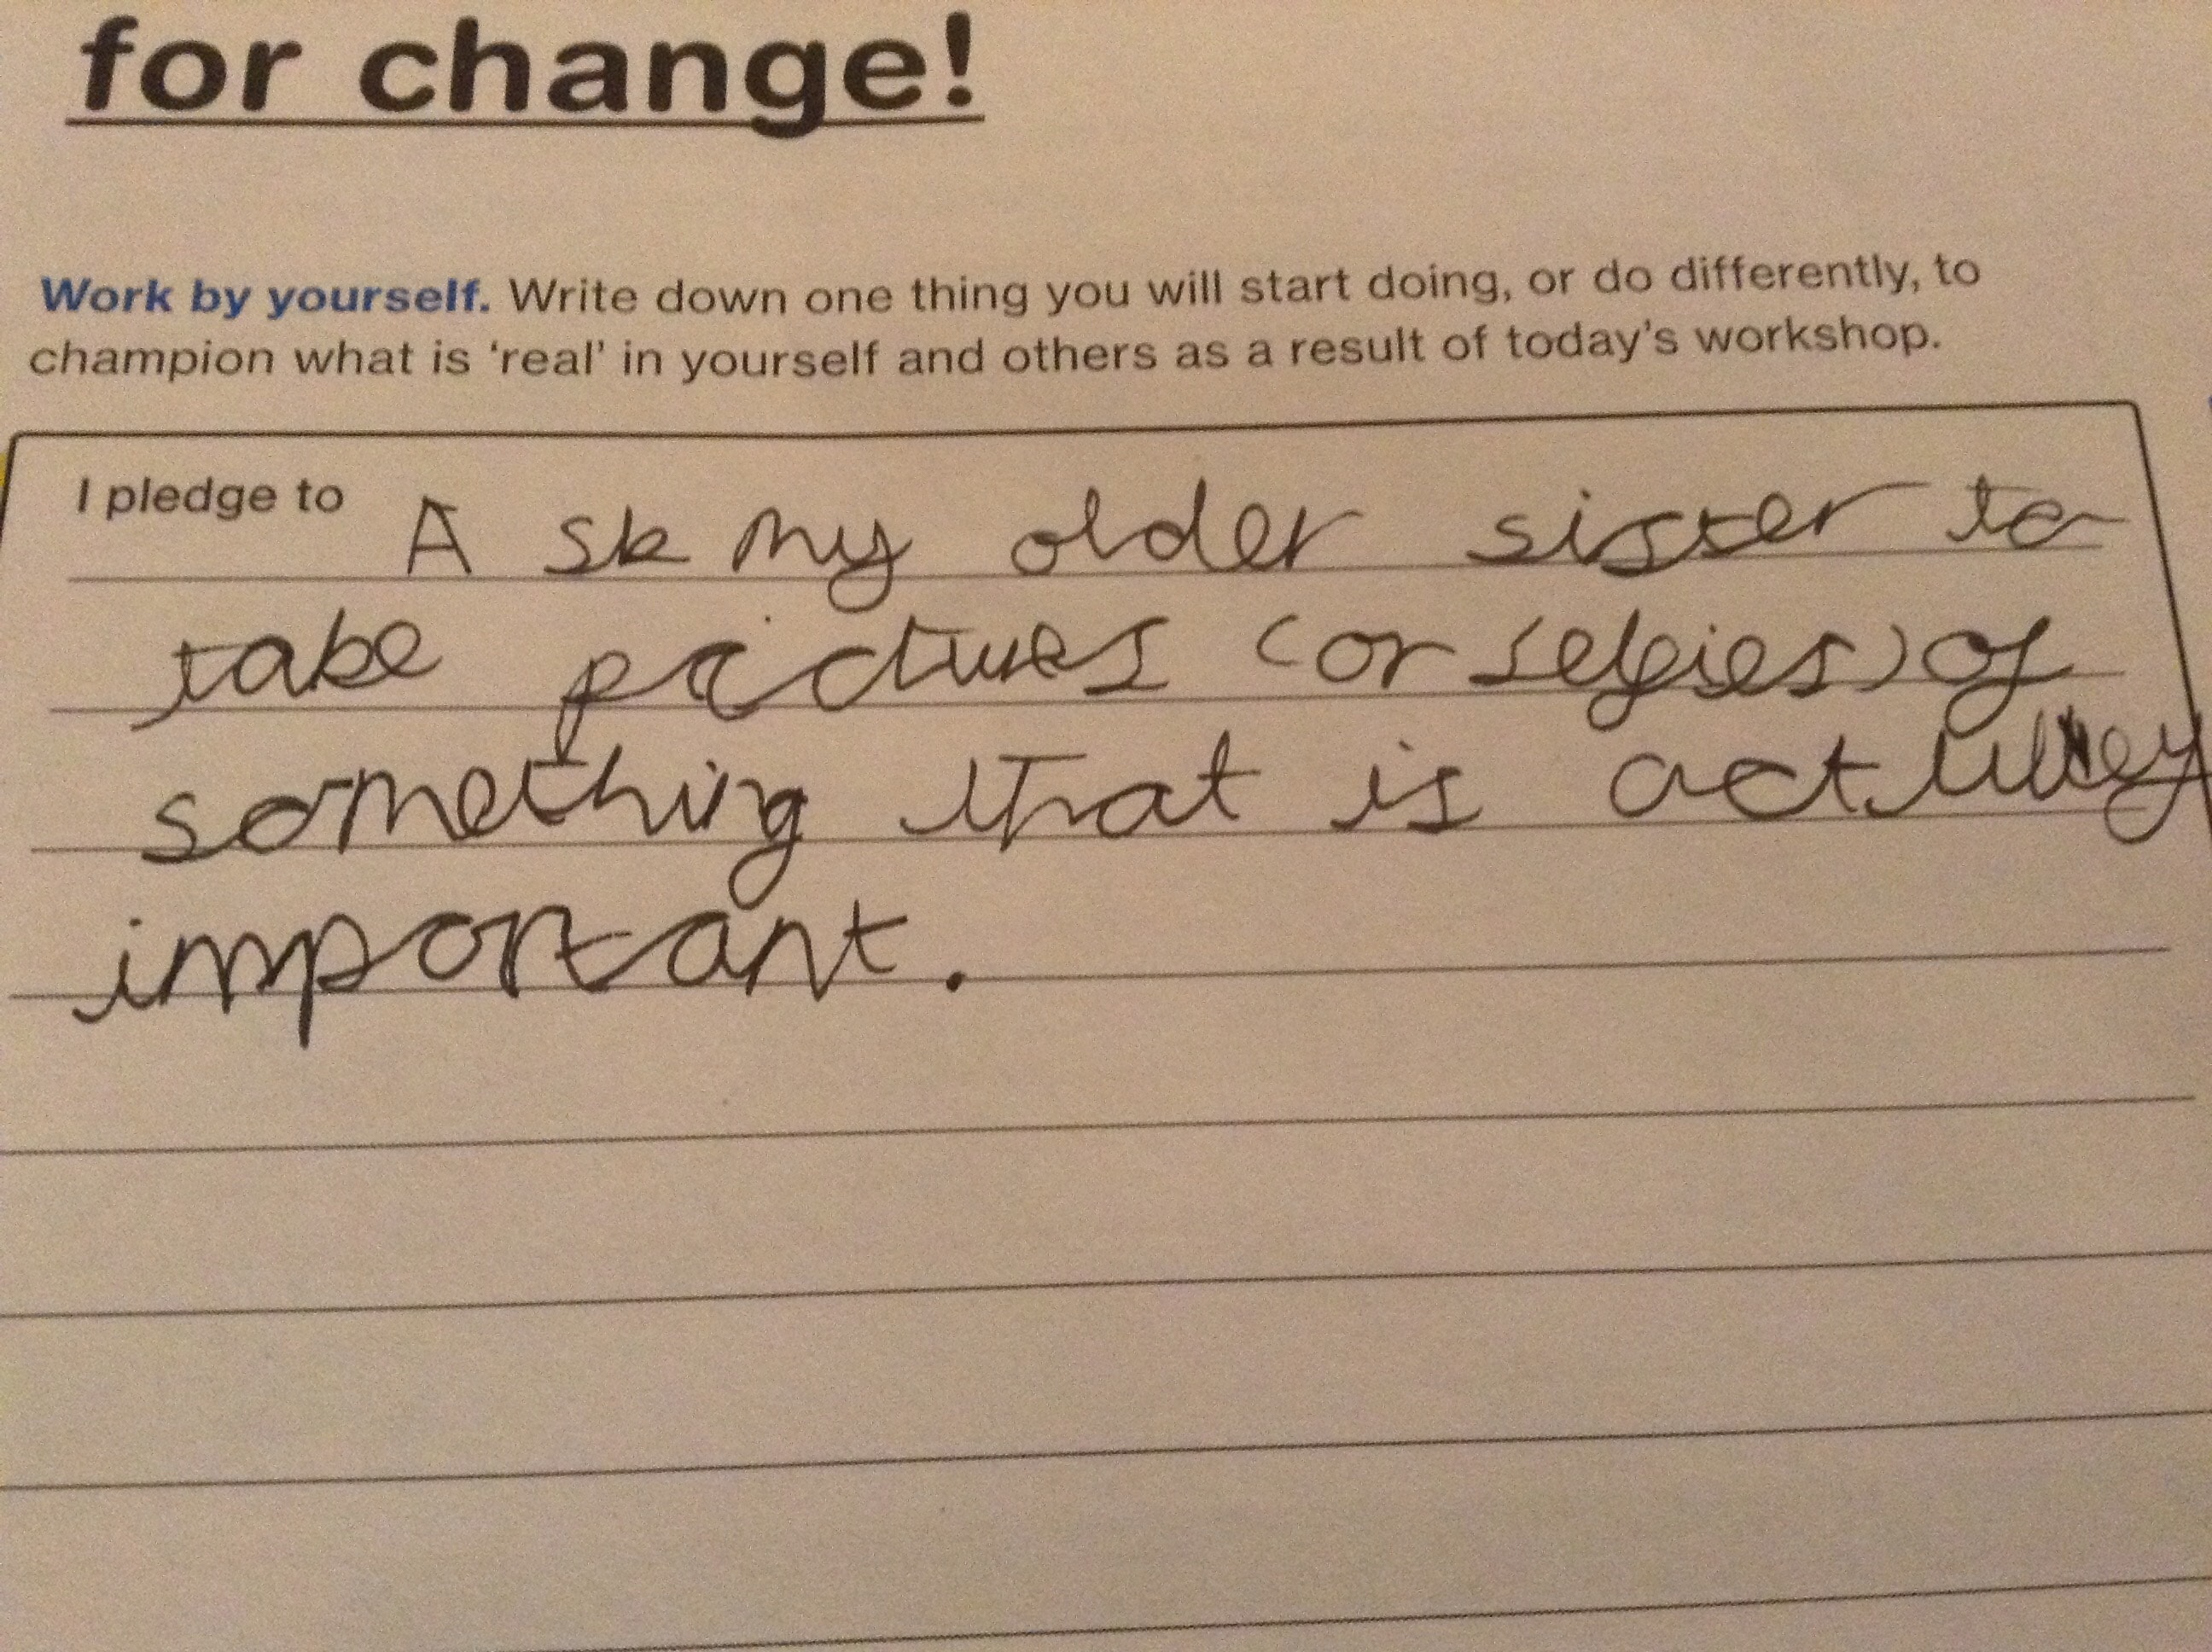 for change!
Work by yourself. Write down one thing you will start doing, or do differently, to
champion what is 'real' in yourself and others as a result of today's workshop.
I pledge to A sk my older sister to
take pictures (or selfies) of
something that is actulley
important.